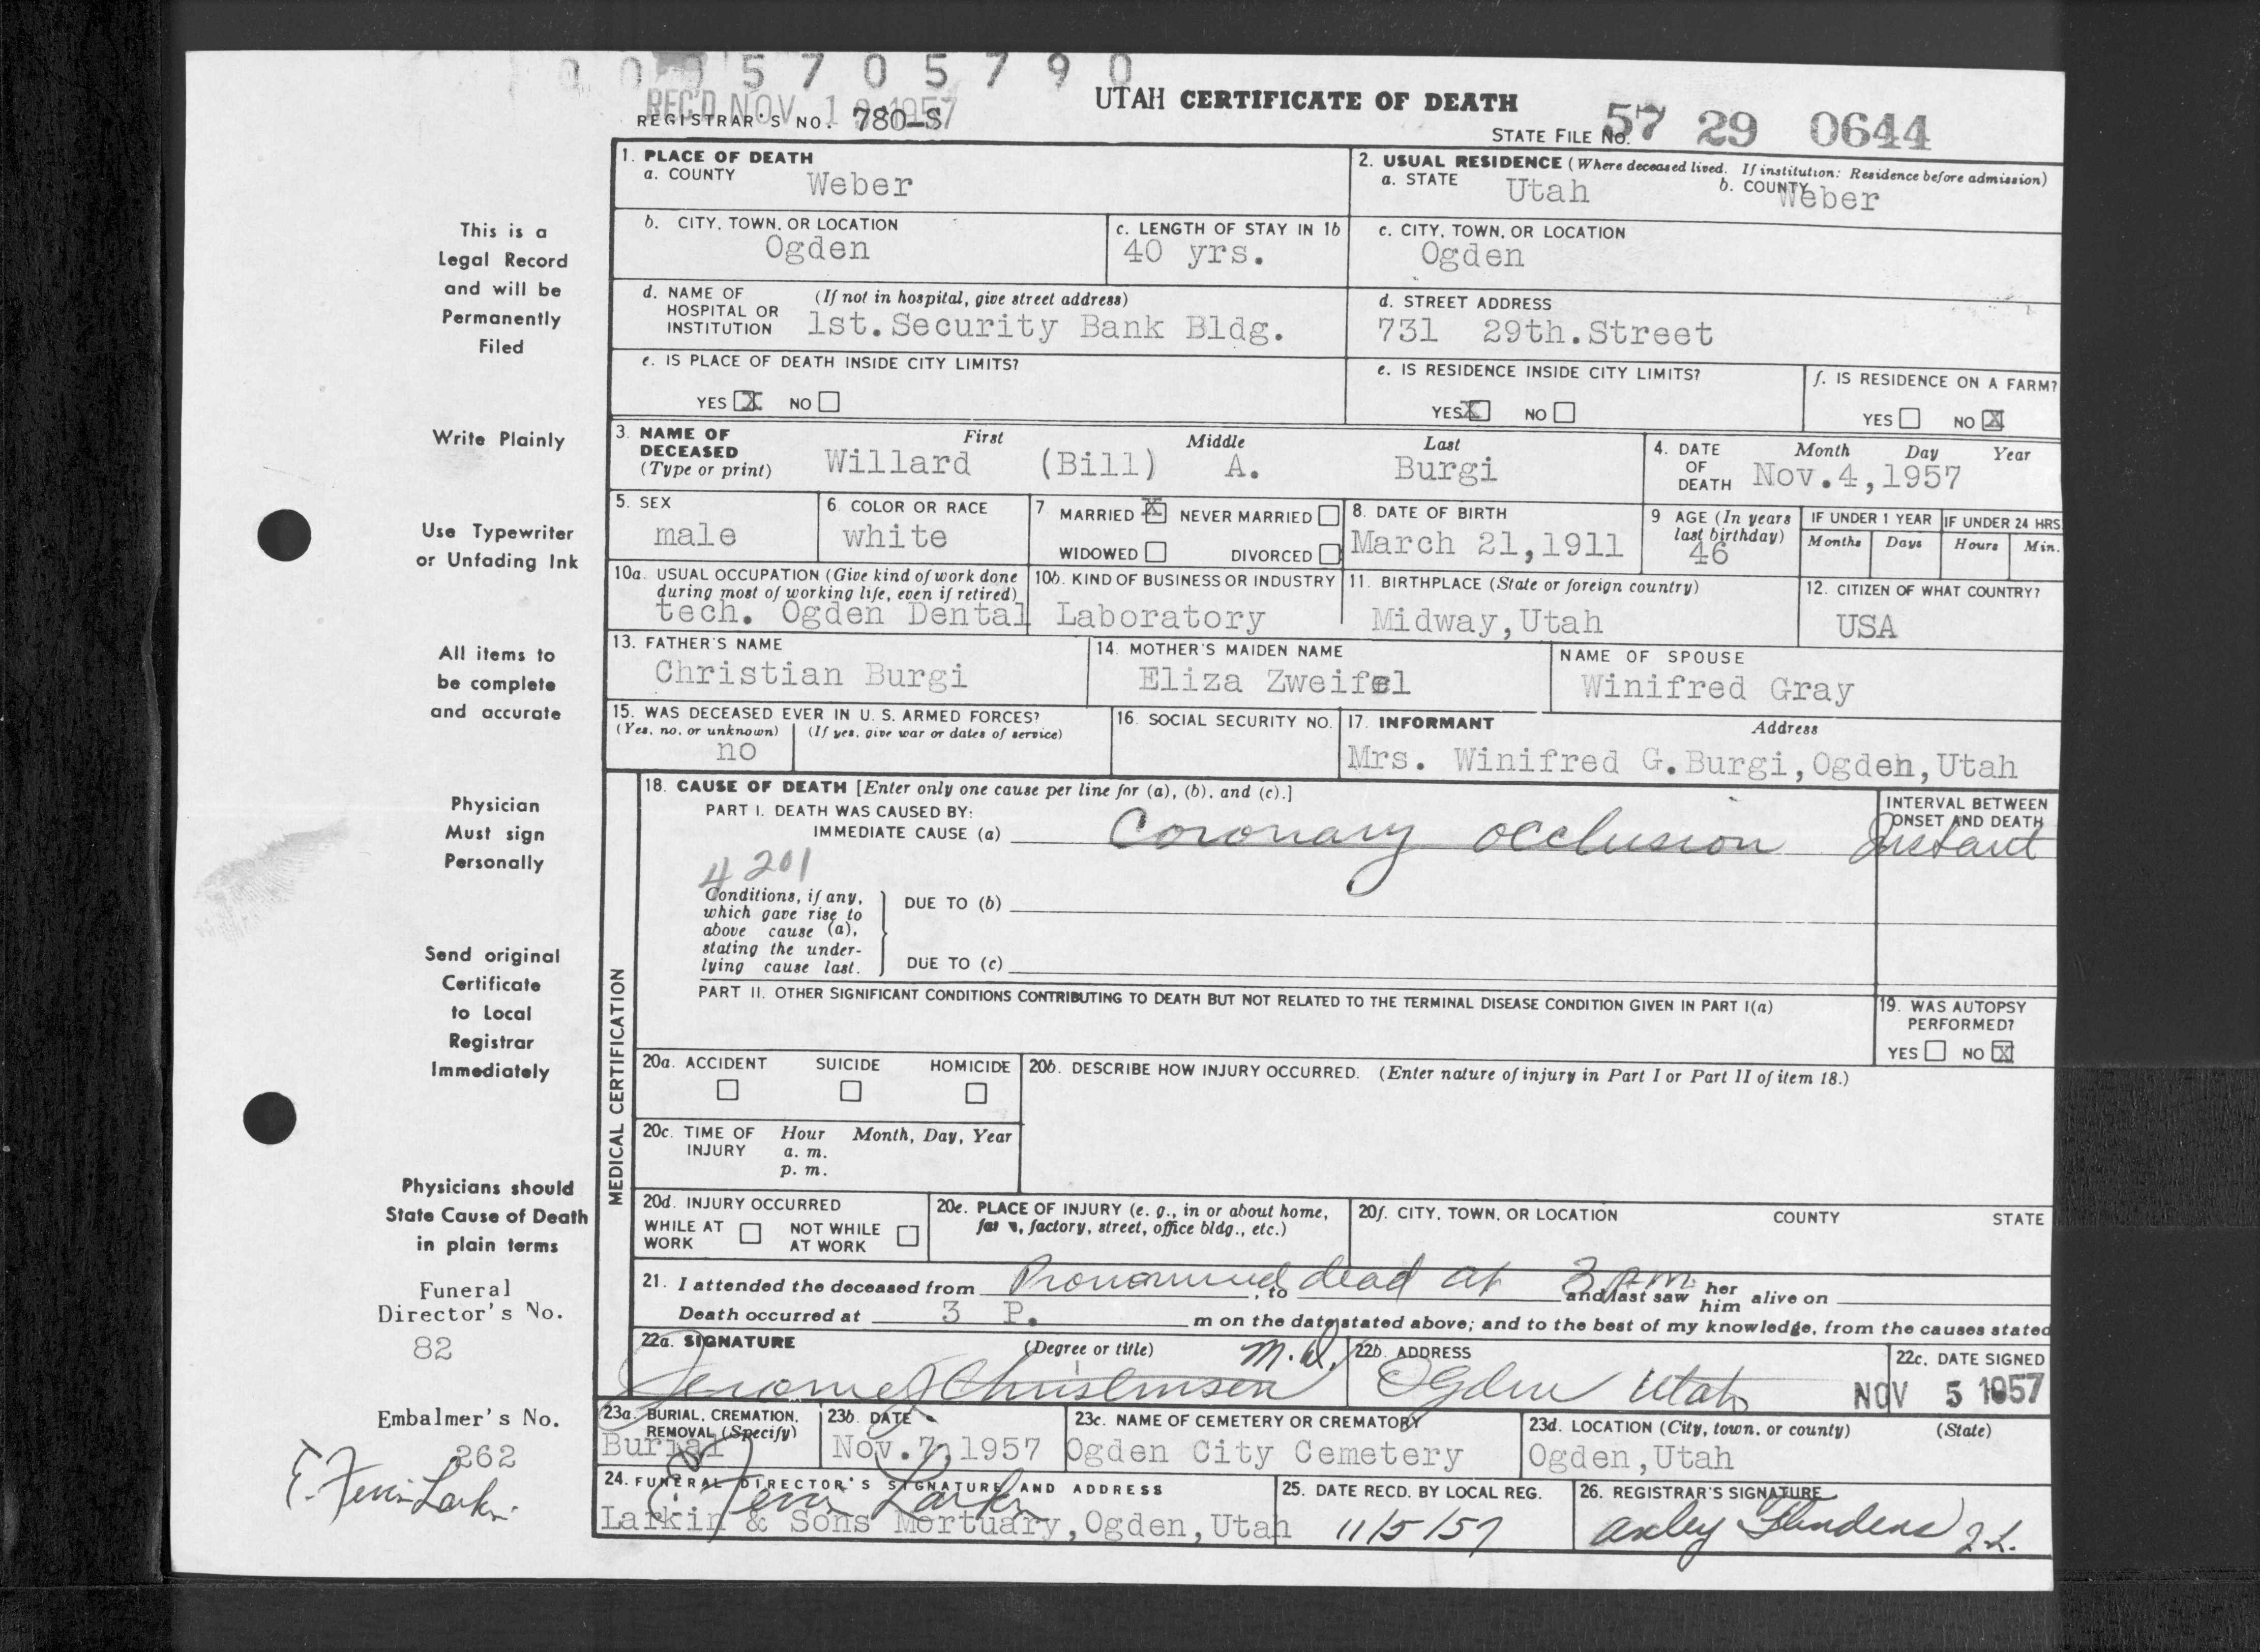 5 7 0 5 7 9 0
REC'D NOV 1 1957
UTAH CERTIFICATE OF DEATH
REGISTRAR'S NO. 780-S
STATE FILE NO. 57 29 0644
1. PLACE OF DEATH
a. COUNTY Weber
2. USUAL RESIDENCE (Where deceased lived. If institution: Residence before admission)
a. STATE Utah b. COUNTY Weber
b. CITY, TOWN, OR LOCATION
Ogden
c. LENGTH OF STAY IN 1b
40 yrs.
c. CITY, TOWN, OR LOCATION
Ogden
d. NAME OF HOSPITAL OR INSTITUTION (If not in hospital, give street address)
1st.Security Bank Bldg.
d. STREET ADDRESS
731 29th.Street
e. IS PLACE OF DEATH INSIDE CITY LIMITS?
YES X NO
e. IS RESIDENCE INSIDE CITY LIMITS?
YES X NO
f. IS RESIDENCE ON A FARM?
YES NO X
3. NAME OF DECEASED (Type or print)
First Middle Last
Willard (Bill) A. Burgi
4. DATE OF DEATH Month Day Year
Nov.4,1957
5. SEX
male
6. COLOR OR RACE
white
7. MARRIED X NEVER MARRIED
WIDOWED DIVORCED
8. DATE OF BIRTH
March 21,1911
9 AGE (In years last birthday)
46
IF UNDER 1 YEAR
Months Days
IF UNDER 24 HRS
Hours Min.
10a. USUAL OCCUPATION (Give kind of work done during most of working life, even if retired)
tech. Ogden Dental
10b. KIND OF BUSINESS OR INDUSTRY
Laboratory
11. BIRTHPLACE (State or foreign country)
Midway,Utah
12. CITIZEN OF WHAT COUNTRY?
USA
13. FATHER'S NAME
Christian Burgi
14. MOTHER'S MAIDEN NAME
Eliza Zweifel
NAME OF SPOUSE
Winifred Gray
15. WAS DECEASED EVER IN U. S. ARMED FORCES?
(Yes, no, or unknown) (If yes, give war or dates of service)
no
16. SOCIAL SECURITY NO.
17. INFORMANT Address
Mrs. Winifred G.Burgi,Ogden,Utah
MEDICAL CERTIFICATION
18. CAUSE OF DEATH [Enter only one cause per line for (a), (b), and (c).]
PART I. DEATH WAS CAUSED BY:
IMMEDIATE CAUSE (a) Coronary occlusion
INTERVAL BETWEEN ONSET AND DEATH
Instant
4201
Conditions, if any, which gave rise to above cause (a), stating the underlying cause last.
DUE TO (b)
DUE TO (c)
PART II. OTHER SIGNIFICANT CONDITIONS CONTRIBUTING TO DEATH BUT NOT RELATED TO THE TERMINAL DISEASE CONDITION GIVEN IN PART I(a)
19. WAS AUTOPSY PERFORMED?
YES NO X
20a. ACCIDENT SUICIDE HOMICIDE
20b. DESCRIBE HOW INJURY OCCURRED. (Enter nature of injury in Part I or Part II of item 18.)
20c. TIME OF INJURY Hour Month, Day, Year
a. m.
p. m.
20d. INJURY OCCURRED
WHILE AT WORK NOT WHILE AT WORK
20e. PLACE OF INJURY (e. g., in or about home, farm, factory, street, office bldg., etc.)
20f. CITY, TOWN, OR LOCATION COUNTY STATE
21. I attended the deceased from Pronounced dead at 3 pm, to and last saw her him alive on
Death occurred at 3 P. m on the date stated above; and to the best of my knowledge, from the causes stated
22a. SIGNATURE (Degree or title)
Jerome J Christensen M.D.
22b. ADDRESS
Ogden Utah
22c. DATE SIGNED
NOV 5 1957
23a. BURIAL, CREMATION, REMOVAL (Specify)
Burial
23b. DATE
Nov.7,1957
23c. NAME OF CEMETERY OR CREMATORY
Ogden City Cemetery
23d. LOCATION (City, town, or county) (State)
Ogden,Utah
24. FUNERAL DIRECTOR'S SIGNATURE AND ADDRESS
Larkin & Sons Mortuary,Ogden,Utah
25. DATE RECD. BY LOCAL REG.
11/5/57
26. REGISTRAR'S SIGNATURE
This is a
Legal Record
and will be
Permanently
Filed
Write Plainly
Use Typewriter
or Unfading Ink
All items to
be complete
and accurate
Physician
Must sign
Personally
Send original
Certificate
to Local
Registrar
Immediately
Physicians should
State Cause of Death
in plain terms
Funeral
Director's No.
82
Embalmer's No.
262
Larkin